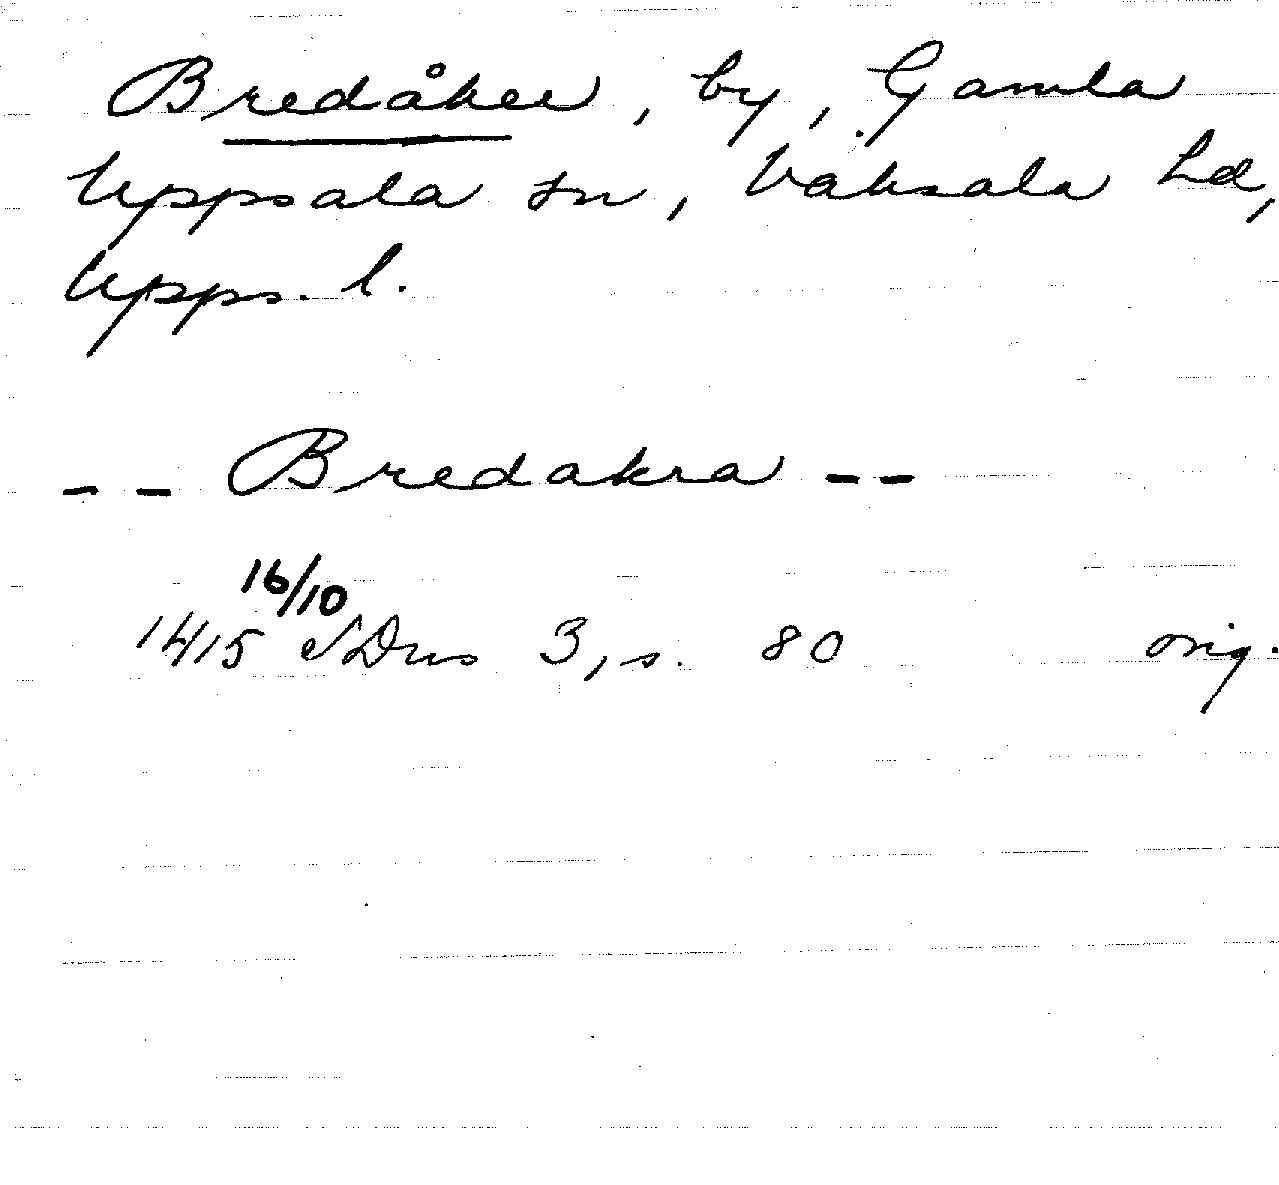 Bredåker, by, Gamla
Uppsala sn, Vaksala hd,
Upps. l.
-- Bredakra --
16/10
1415 SDns 3, s. 80 orig.